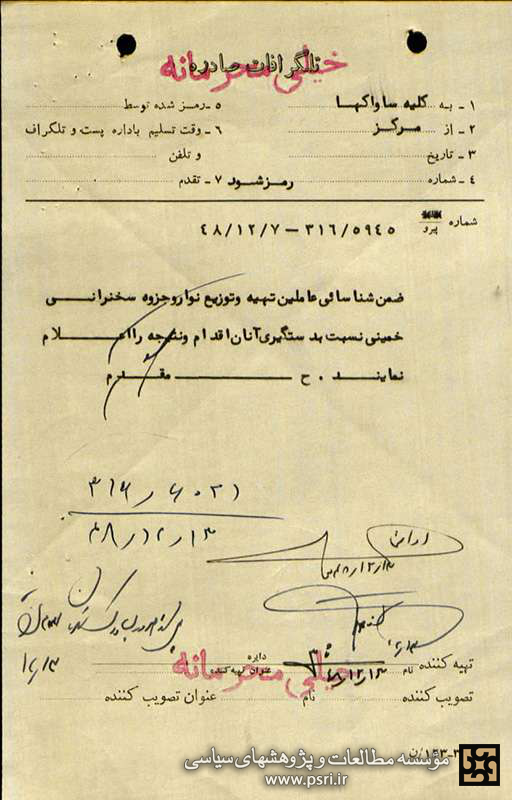 تلگرافات صادره
خیلی محرمانه
۱ـ به کلیه ساواکها
۵ـ رمز شده توسط
۲ـ از مرکز
۶ـ وقت تسلیم باداره پست و تلگراف
و تلفن
۳ـ تاریخ
۴ـ شماره
رمز شود ۷ـ تقدم
شماره
پیرو
۳۱۶/۵۹۴۵ - ۴۸/۱۲/۷
ضمن شناسائی عاملین تهیه و توزیع نوار و جزوه سخنرانی
خمینی نسبت بدستگیری آنان اقدام و نتیجه را اعلام
نمایند . ح مقدم
۳۱۶ ر ۶۰۲۱
۴۸ ر ۱۲ ر ۱۳
۴۸/۱۲/۱۳
۱۲/۱۳
تهیه کننده
نام
دایره
عنوان تهیه کننده
۴۸/۱۲/۱۳
خیلی محرمانه
تصویب کننده
نام
عنوان تصویب کننده
موسسه مطالعات و پژوهشهای سیاسی
www.psri.ir